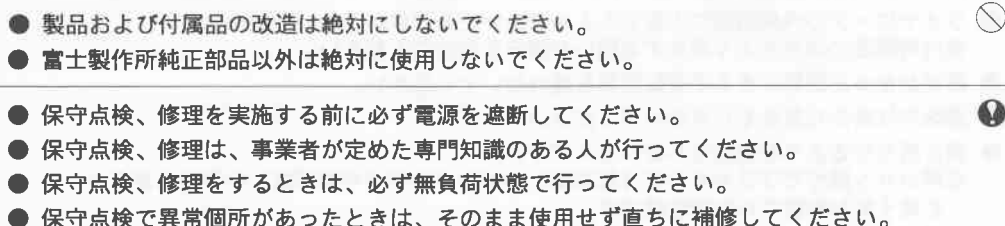 ● 製品および付属品の改造は絶対にしないでください。
● 富士製作所純正部品以外は絶対に使用しないでください。
● 保守点検、修理を実施する前に必ず電源を遮断してください。
● 保守点検、修理は、事業者が定めた専門知識のある人が行ってください。
● 保守点検、修理をするときは、必ず無負荷状態で行ってください。
● 保守点検で異常個所があったときは、そのまま使用せず直ちに補修してください。